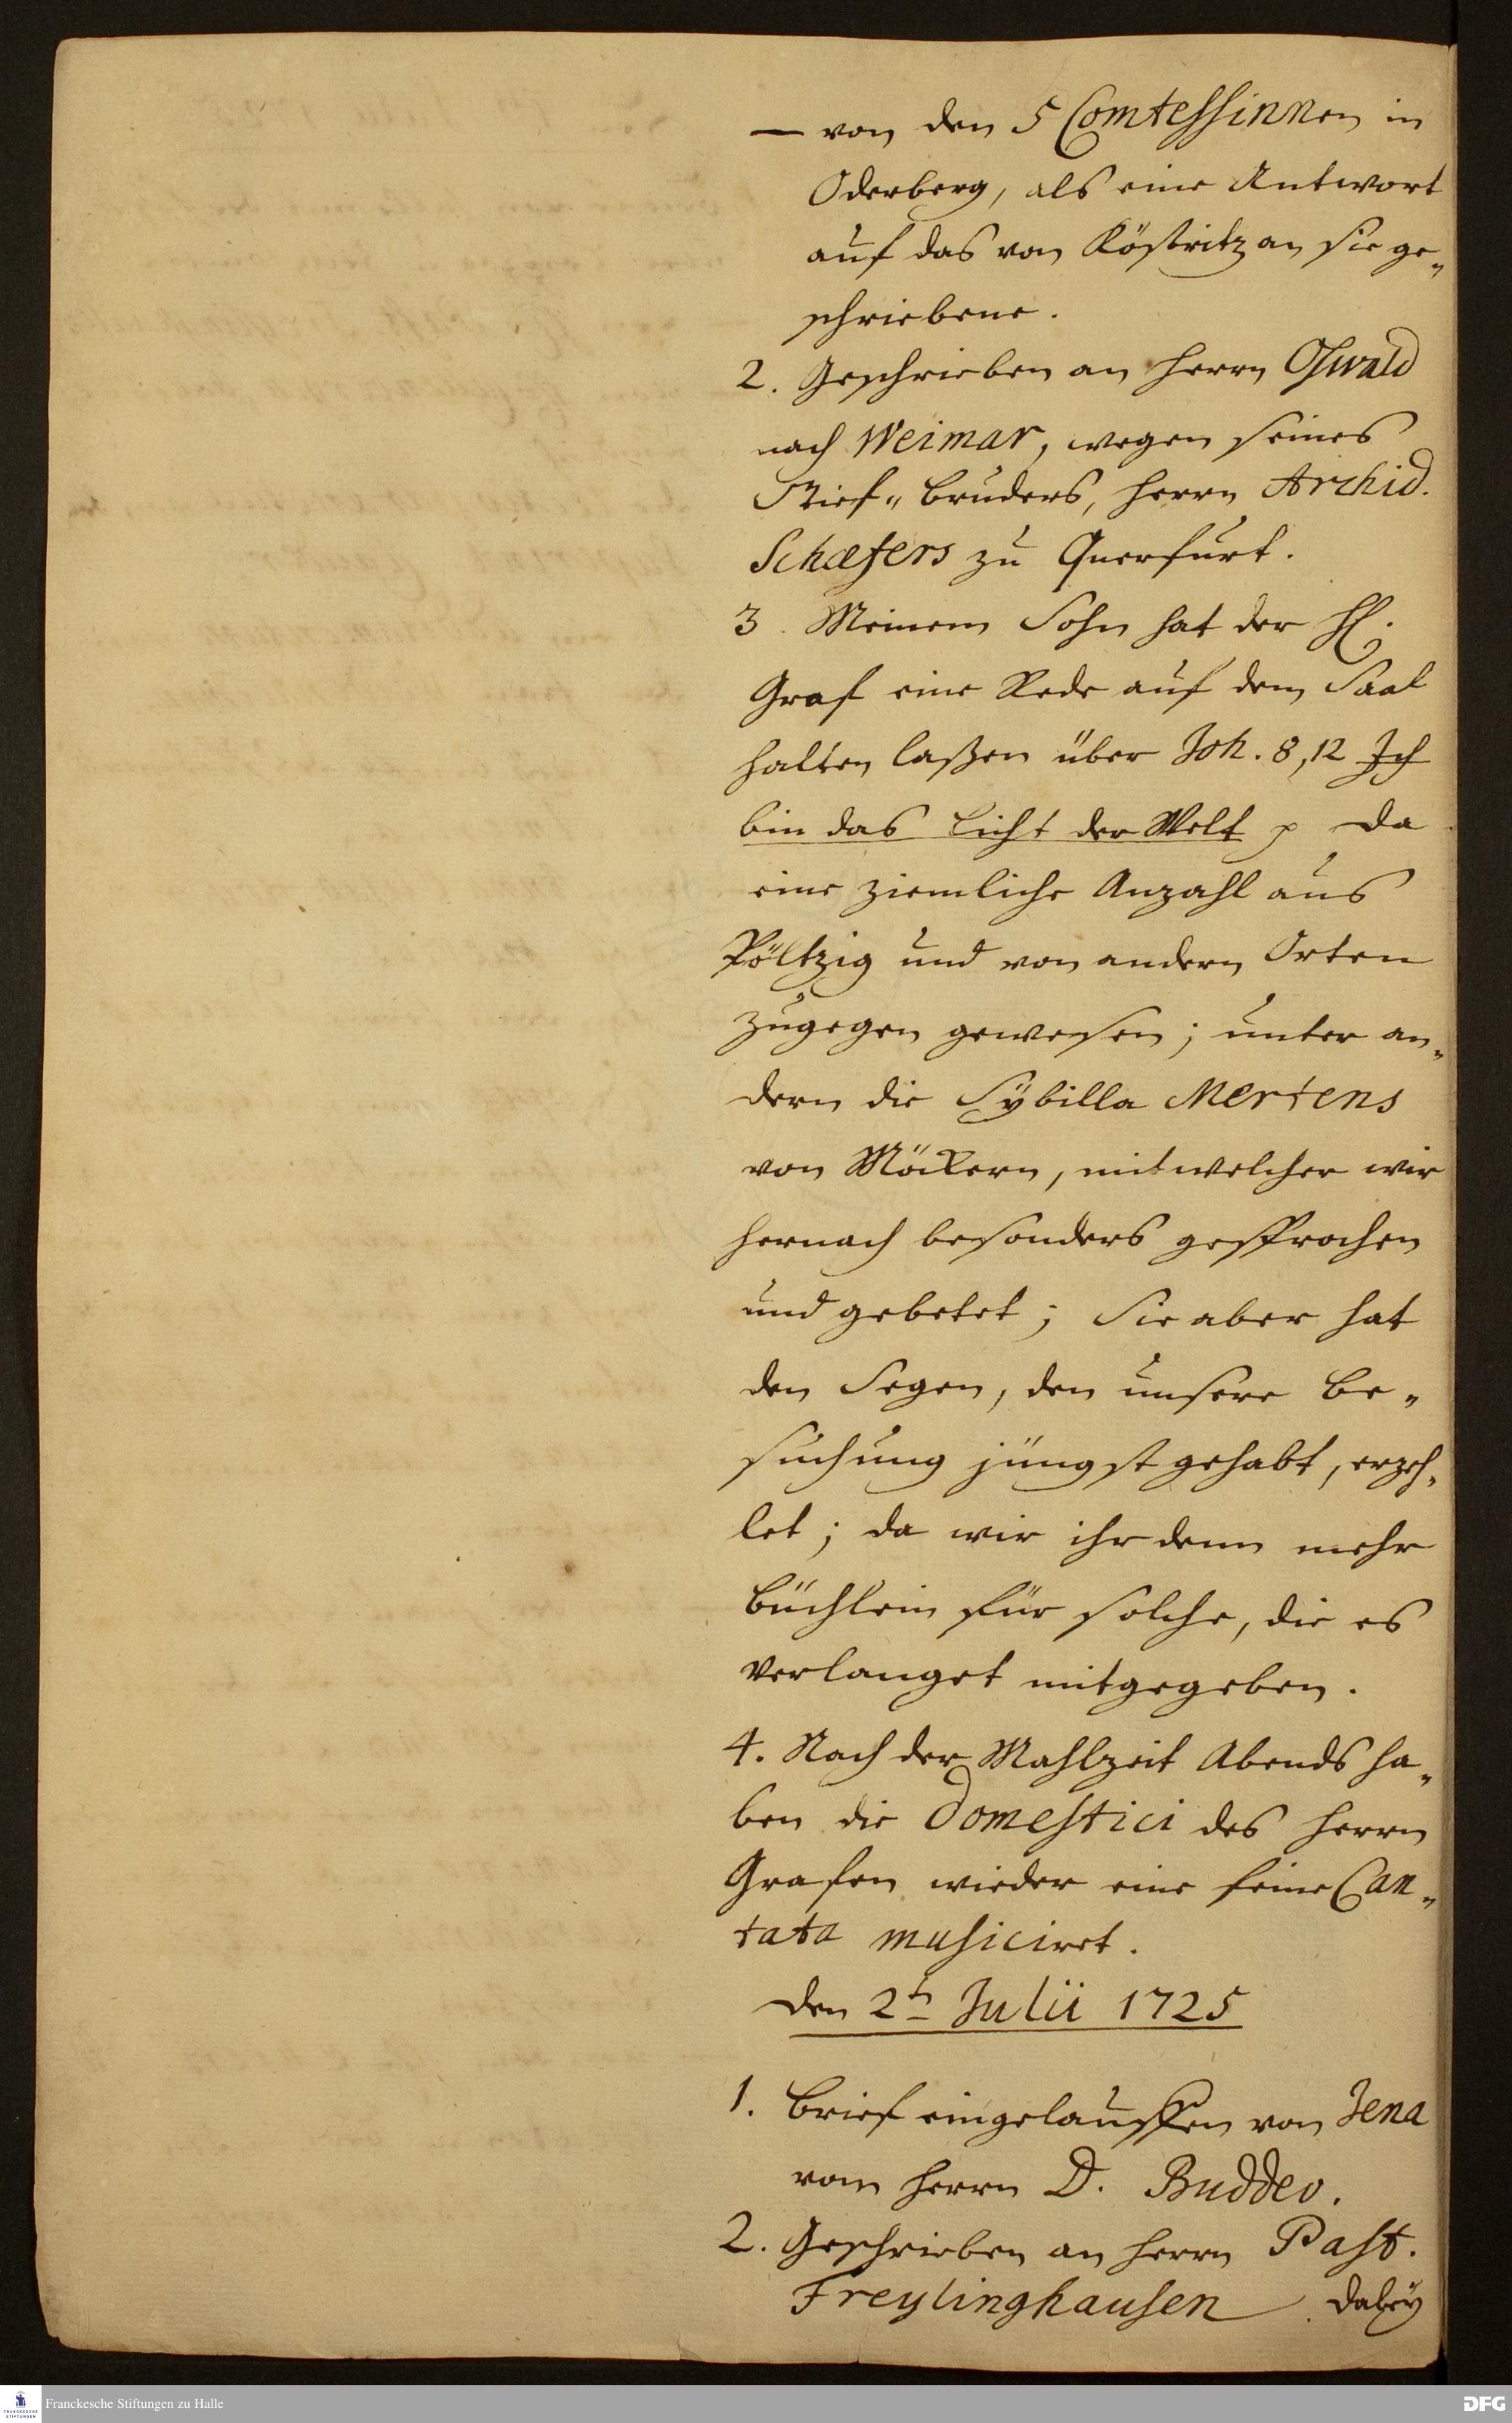 — von den 5 Comtessinnen in
Oderberg, als eine Antwort
auf das von Köstritz an sie ge„
schriebene.
2. Geschrieben an Herrn Oswald
nach Weimar, wegen seines
Stief„ bruders, Herrn Archid.
Schæfers zu Querfurt.
3. Meinem Sohn hat der H.
Graf eine Rede auf dem Saal
halten laßen über Joh. 8, 12 Ich
bin das Licht der Welt p da
eine ziemliche Anzahl aus
Pöltzig und von andern Orten
zugegen gewesen; unter an„
dern die Sÿbilla Mertens
von Möckern, mit welcher wir
hernach besonders gesprochen
und gebetet; Sie aber hat
den Segen, den unsere Be„
suchung jüngst gehabt, erzeh„
let; da wir ihr denn mehr
Büchlein für solche, die es
verlanget mitgegeben.
4. Nach der Mahlzeit Abends ha„
ben die Domestici des Herrn
Grafen wieder eine feine Can„
tata musiciret.
den 2ten Julii 1725
1. Brief eingelauffen von Jena
vom Herrn D. Buddeo.
2. Geschrieben an Herrn Past.
Freylinghausen dabeÿ
Franckesche Stiftungen zu Halle
DFG